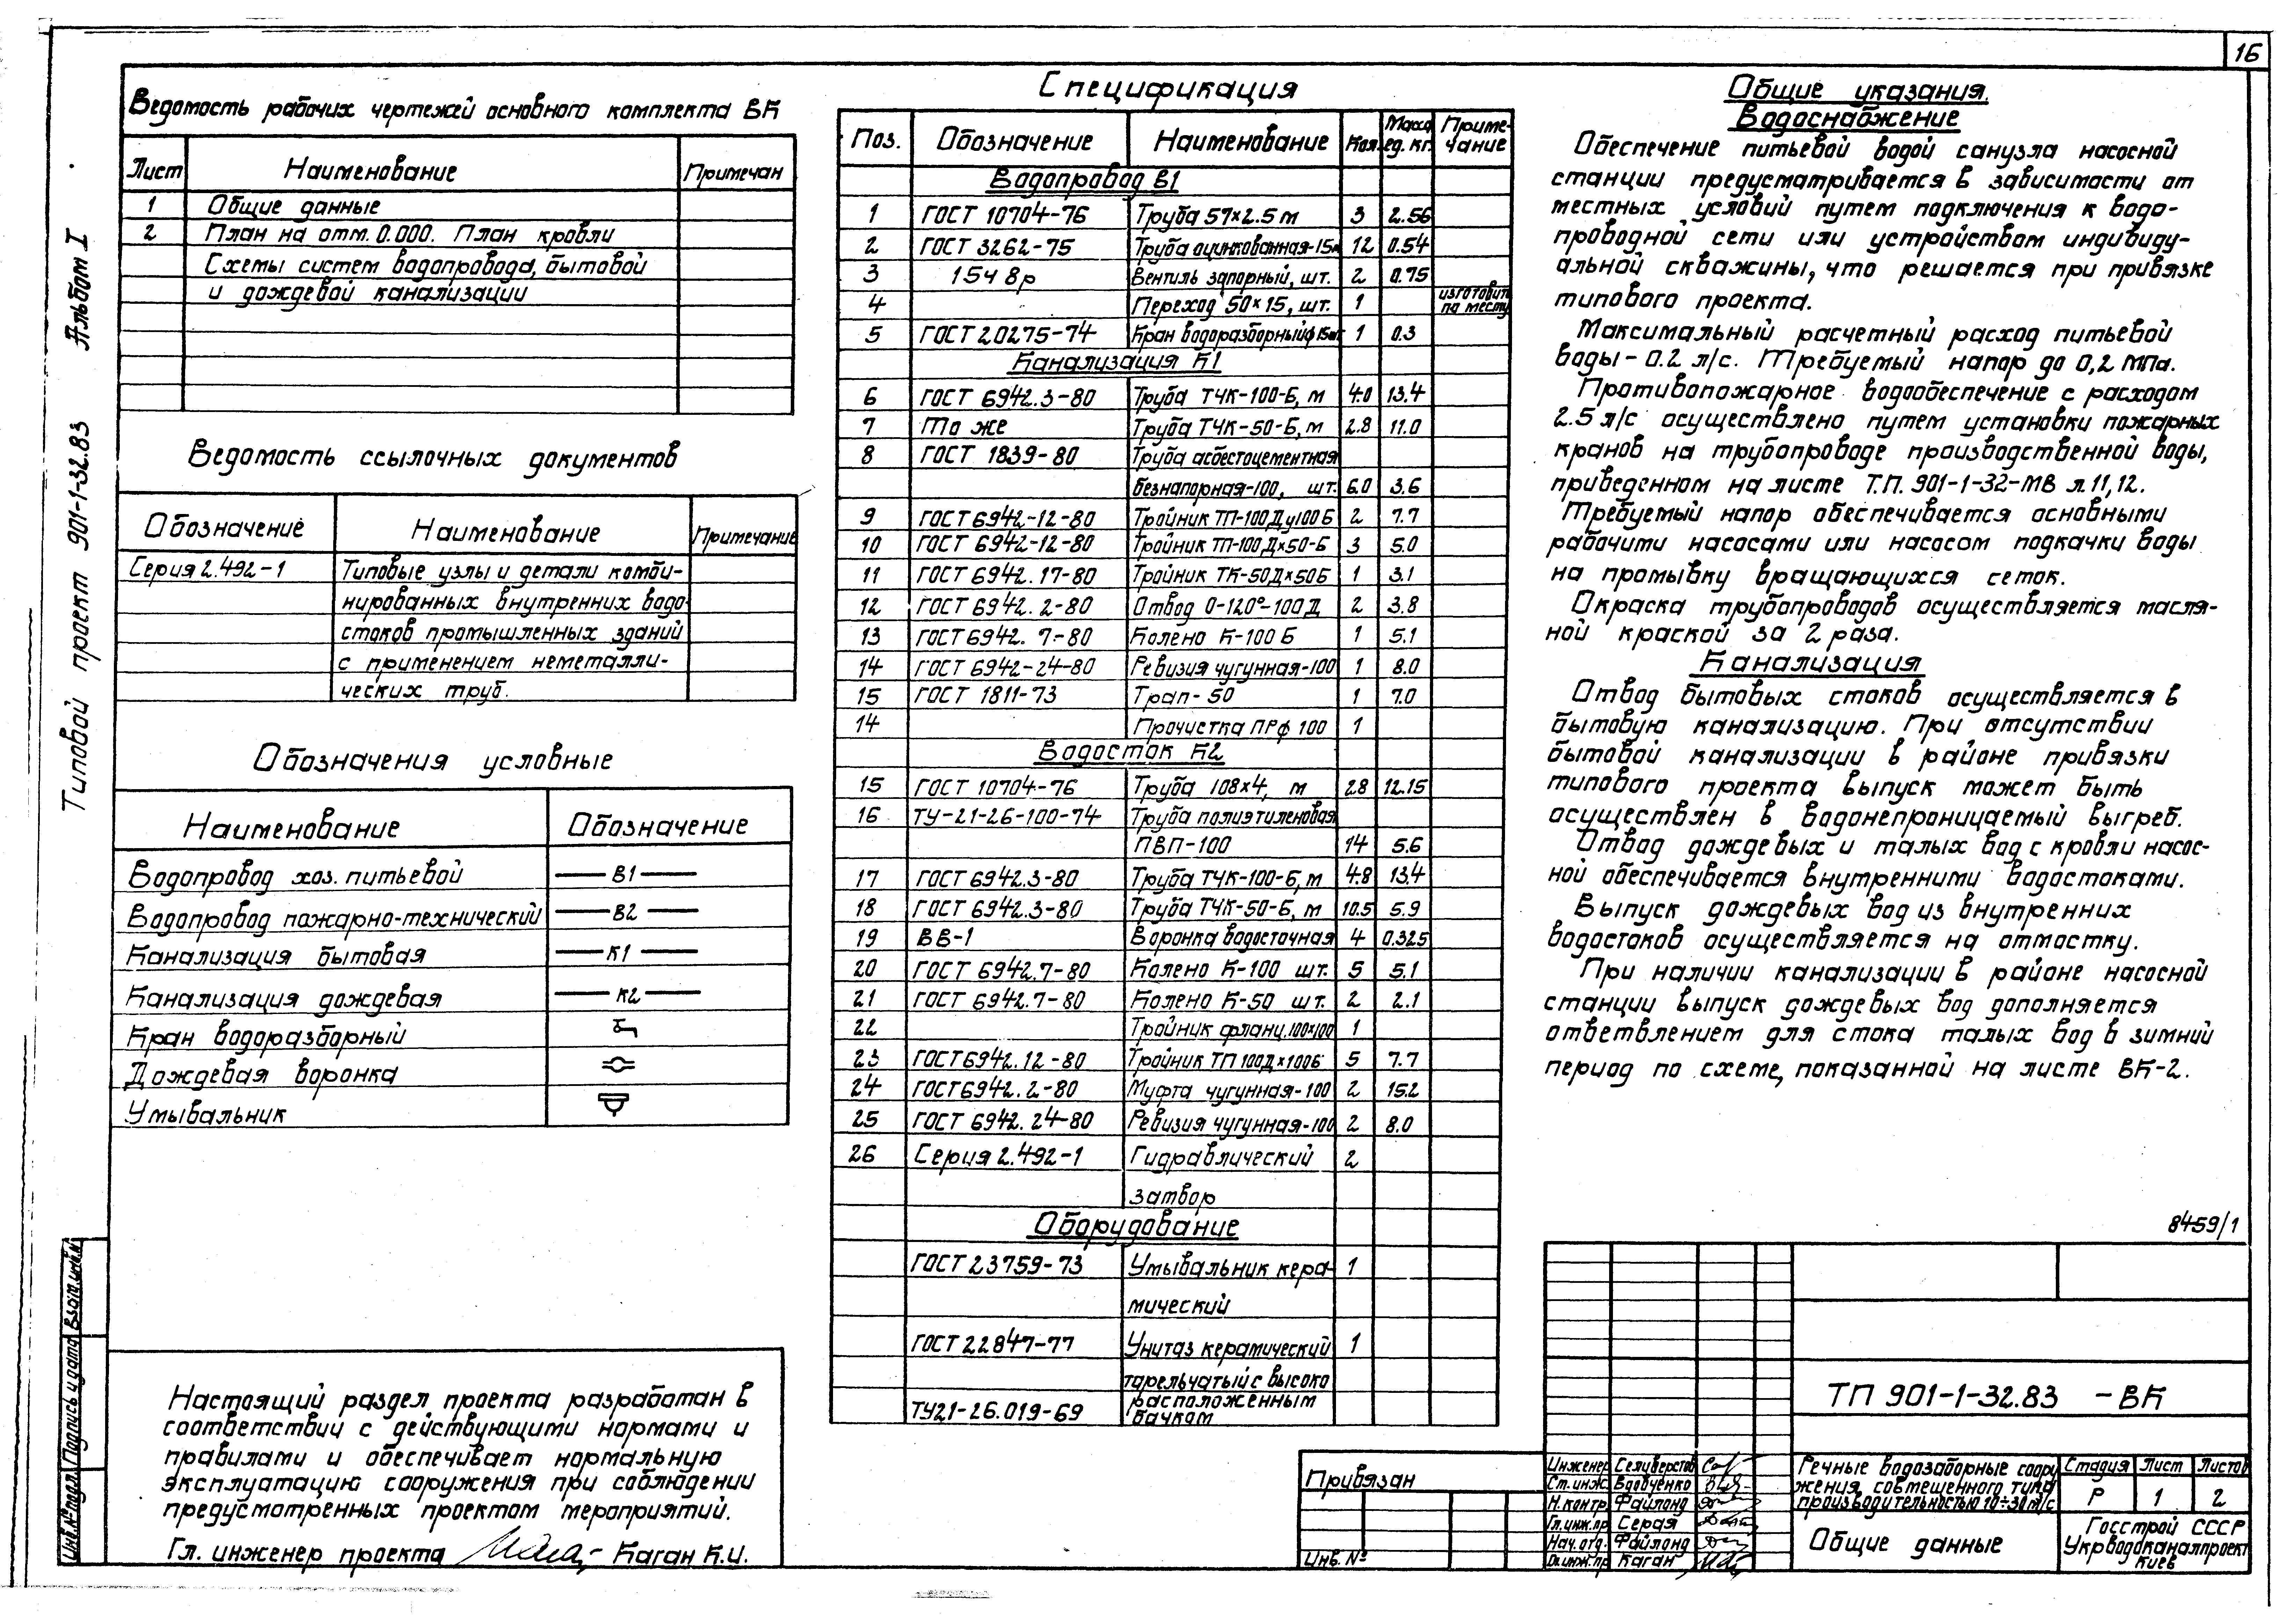 16
Типовой проект 901-1-32.83 Альбом I
Ведомость рабочих чертежей основного комплекта ВК
Лист Наименование Примечан
1 Общие данные
2 План на отм. 0.000. План кровли
Схемы систем водопровода, бытовой
и дождевой канализации
Ведомость ссылочных документов
Обозначение Наименование Примечание
Серия 2.492-1 Типовые узлы и детали комби-
нированных внутренних водо-
стоков промышленных зданий
с применением неметалли-
ческих труб.
Обозначения условные
Наименование Обозначение
Водопровод хоз. питьевой В1
Водопровод пожарно-технический В2
Канализация бытовая К1
Канализация дождевая К2
Кран водоразборный
Дождевая воронка
Умывальник
Настоящий раздел проекта разработан в
соответствии с действующими нормами и
правилами и обеспечивает нормальную
эксплуатацию сооружения при соблюдении
предусмотренных проектом мероприятий.
Гл. инженер проекта Каган К.И.
Взам.инв.№
Подпись и дата
Инв.№ подл.
Спецификация
Поз. Обозначение Наименование Кол. Масса ед. кг. Приме-чание
Водопровод В1
1 ГОСТ 10704-76 Труба 57×2.5 м 3 2.56
2 ГОСТ 3262-75 Труба оцинкованная-15м 12 0.54
3 15ч 8р Вентиль запорный, шт. 2 0.75
4 Переход 50×15, шт. 1 изготовить по месту
5 ГОСТ 20275-74 Кран водоразборный ф15шт 1 0.3
Канализация К1
6 ГОСТ 6942.3-80 Труба ТЧК-100-Б, м 4.0 13.4
7 То же Труба ТЧК-50-Б, м 2.8 11.0
8 ГОСТ 1839-80 Труба асбестоцементная
безнапорная-100, шт. 6.0 3.6
9 ГОСТ 6942-12-80 Тройник ТП-100Ду100Б 2 7.7
10 ГОСТ 6942-12-80 Тройник ТП-100Д×50-Б 3 5.0
11 ГОСТ 6942.17-80 Тройник ТК-50Д×50Б 1 3.1
12 ГОСТ 6942.2-80 Отвод О-120°-100Д 2 3.8
13 ГОСТ 6942.7-80 Колено К-100Б 1 5.1
14 ГОСТ 6942-24-80 Ревизия чугунная-100 1 8.0
15 ГОСТ 1811-73 Трап-50 1 7.0
14 Прочистка ПРф 100 1
Водосток К2
15 ГОСТ 10704-76 Труба 108×4, м 2.8 12.15
16 ТУ-21-26-100-74 Труба полиэтиленовая
ПВП-100 14 5.6
17 ГОСТ 6942.3-80 Труба ТЧК-100-Б, м 4.8 13.4
18 ГОСТ 6942.3-80 Труба ТЧК-50-Б, м 10.5 5.9
19 ВВ-1 Воронка водосточная 4 0.325
20 ГОСТ 6942.7-80 Колено К-100 шт. 5 5.1
21 ГОСТ 6942.7-80 Колено К-50 шт. 2 2.1
22 Тройник фланц.100×100 1
23 ГОСТ 6942.12-80 Тройник ТП 100Д×100Б 5 7.7
24 ГОСТ 6942.2-80 Муфта чугунная-100 2 15.2
25 ГОСТ 6942.24-80 Ревизия чугунная-100 2 8.0
26 Серия 2.492-1 Гидравлический 2
затвор
Оборудование
ГОСТ 23759-73 Умывальник кера- 1
мический
ГОСТ 22847-77 Унитаз керамический 1
тарельчатый с высоко
ТУ21-26.019-69 расположенным
бачком
Общие указания.
Водоснабжение
Обеспечение питьевой водой санузла насосной
станции предусматривается в зависимости от
местных условий путем подключения к водо-
проводной сети или устройством индивиду-
альной скважины, что решается при привязке
типового проекта.
Максимальный расчетный расход питьевой
воды - 0.2 л/с. Требуемый напор до 0,2 МПа.
Противопожарное водообеспечение с расходом
2.5 л/с осуществлено путем установки пожарных
кранов на трубопроводе производственной воды,
приведенном на листе Т.П. 901-1-32-МВ л.11,12.
Требуемый напор обеспечивается основными
рабочити насосами или насосом подкачки воды
на промывку вращающихся сеток.
Окраска трубопроводов осуществляется масля-
ной краской за 2 раза.
Канализация
Отвод бытовых стоков осуществляется в
бытовую канализацию. При отсутствии
бытовой канализации в районе привязки
типового проекта выпуск может быть
осуществлен в водонепроницаемый выгреб.
Отвод дождевых и талых вод с кровли насос-
ной обеспечивается внутренними водостоками.
Выпуск дождевых вод из внутренних
водостоков осуществляется на отмостку.
При наличии канализации в районе насосной
станции выпуск дождевых вод дополняется
ответвлением для стока талых вод в зимний
период по схеме, показанной на листе ВК-2.
8459/1
ТП 901-1-32.83 -ВК
Привязан
Инв. №
Инженер Селиверстов
Ст.инж. Вдовченко
Н.контр Файлонд
Гл.инж.пр Серая
Нач.отд. Файлонд
Гл.инж.пр Каган
Речные водозаборные соору-
жения совмещенного типа
производительностью 10÷30м³/с
Стадия Лист Листов
Р 1 2
Общие данные
Госстрой СССР
Укрводоканалпроект
Киев